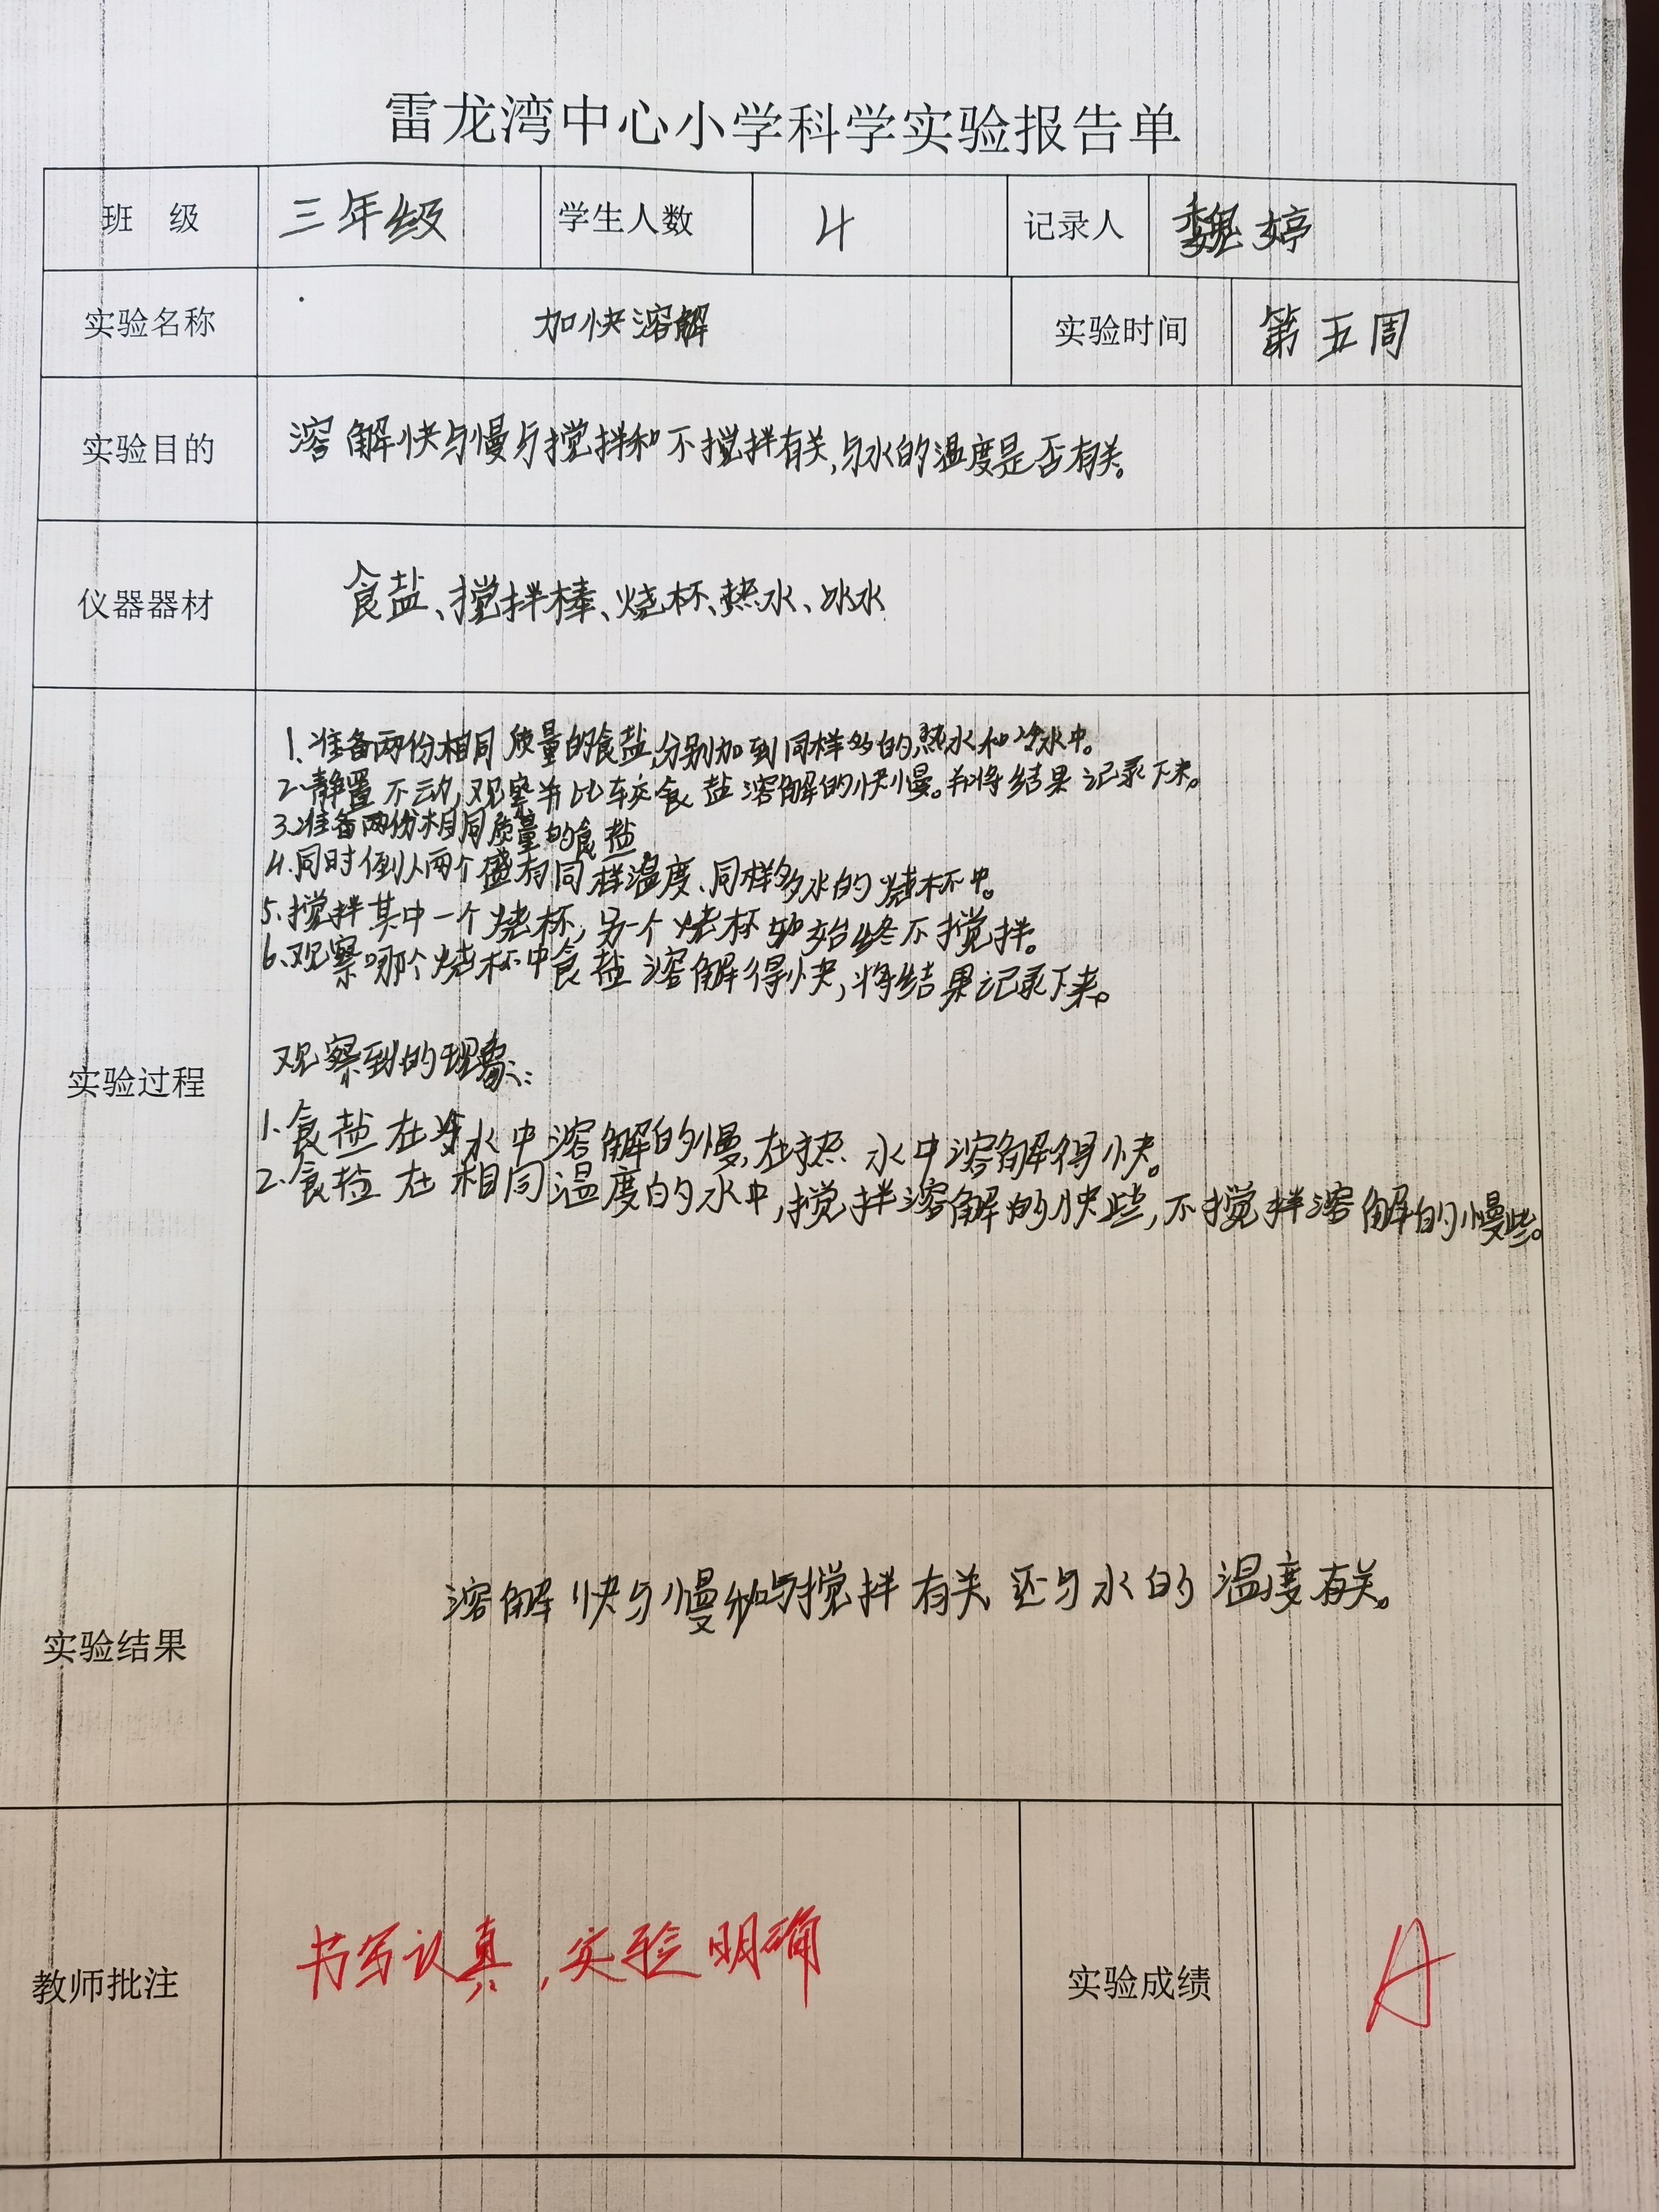 雷龙湾中心小学科学实验报告单
班 级 三年级 学生人数 4 记录人 魏婷
实验名称 加快溶解 实验时间 第五周
实验目的 溶解快与慢与搅拌和不搅拌有关,与水的温度是否有关。
仪器器材 食盐、搅拌棒、烧杯、热水、冰水
1.准备两份相同质量的食盐,分别加到同样多的热水和冷水中。
2.静置不动,观察并比较食盐溶解的快慢。并将结果记录下来。
3.准备两份相同质量的食盐
4.同时倒入两个盛有同样温度、同样多水的烧杯中。
5.搅拌其中一个烧杯,另一个烧杯始终不搅拌。
6.观察哪个烧杯中食盐溶解得快,将结果记录下来。
观察到的现象:
实验过程
1.食盐在冷水中溶解的慢,在热水中溶解得快。
2.食盐在相同温度的水中,搅拌溶解的快些,不搅拌溶解的慢些。
溶解快与慢与搅拌有关 还与水的温度有关。
实验结果
书写认真,实验明确
教师批注 实验成绩 A